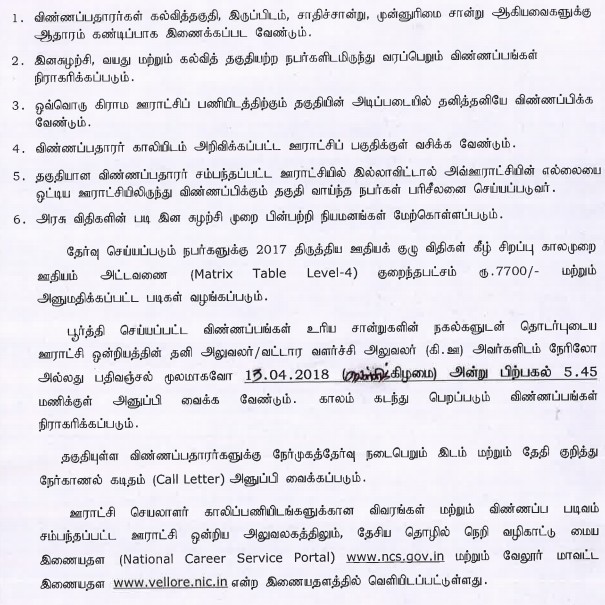 1. விண்ணப்பதாரர்கள் கல்வித்தகுதி, இருப்பிடம், சாதிச்சான்று, முன்னுரிமை சான்று ஆகியவைகளுக்கு
ஆதாரம் கண்டிப்பாக இணைக்கப்பட வேண்டும்.
2. இனசுழற்சி, வயது மற்றும் கல்வித் தகுதியற்ற நபர்களிடமிருந்து வரப்பெறும் விண்ணப்பங்கள்
நிராகரிக்கப்படும்.
3. ஒவ்வொரு கிராம ஊராட்சிப் பணியிடத்திற்கும் தகுதியின் அடிப்படையில் தனித்தனியே விண்ணப்பிக்க
வேண்டும்.
4. விண்ணப்பதாரர் காலியிடம் அறிவிக்கப்பட்ட ஊராட்சிப் பகுதிக்குள் வசிக்க வேண்டும்.
5. தகுதியான விண்ணப்பதாரர் சம்பந்தப்பட்ட ஊராட்சியில் இல்லாவிட்டால் அவ்ஊராட்சியின் எல்லையை
ஒட்டிய ஊராட்சியிலிருந்து விண்ணப்பிக்கும் தகுதி வாய்ந்த நபர்கள் பரிசீலனை செய்யப்படுவர்.
6. அரசு விதிகளின் படி இன சுழற்சி முறை பின்பற்றி நியமனங்கள் மேற்கொள்ளப்படும்.
தேர்வு செய்யப்படும் நபர்களுக்கு 2017 திருத்திய ஊதியக் குழு விதிகள் கீழ் சிறப்பு காலமுறை
ஊதியம் அட்டவணை (Matrix Table Level-4) குறைந்தபட்சம் ரூ.7700/- மற்றும்
அனுமதிக்கப்பட்ட படிகள் வழங்கப்படும்.
பூர்த்தி செய்யப்பட்ட விண்ணப்பங்கள் உரிய சான்றுகளின் நகல்களுடன் தொடர்புடைய
ஊராட்சி ஒன்றியத்தின் தனி அலுவலர்/வட்டார வளர்ச்சி அலுவலர் (கி.ஊ) அவர்களிடம் நேரிலோ
அல்லது பதிவஞ்சல் மூலமாகவோ 13.04.2018 (வெள்ளிக்கிழமை) அன்று பிற்பகல் 5.45
மணிக்குள் அனுப்பி வைக்க வேண்டும். காலம் கடந்து பெறப்படும் விண்ணப்பங்கள்
நிராகரிக்கப்படும்.
தகுதியுள்ள விண்ணப்பதாரர்களுக்கு நேர்முகத்தேர்வு நடைபெறும் இடம் மற்றும் தேதி குறித்து
நேர்காணல் கடிதம் (Call Letter) அனுப்பி வைக்கப்படும்.
ஊராட்சி செயலாளர் காலிப்பணியிடங்களுக்கான விவரங்கள் மற்றும் விண்ணப்ப படிவம்
சம்பந்தப்பட்ட ஊராட்சி ஒன்றிய அலுவலகத்திலும், தேசிய தொழில் நெறி வழிகாட்டு மைய
இணையதள (National Career Service Portal) www.ncs.gov.in மற்றும் வேலூர் மாவட்ட
இணையதள www.vellore.nic.in என்ற இணையதளத்தில் வெளியிடப்பட்டுள்ளது.